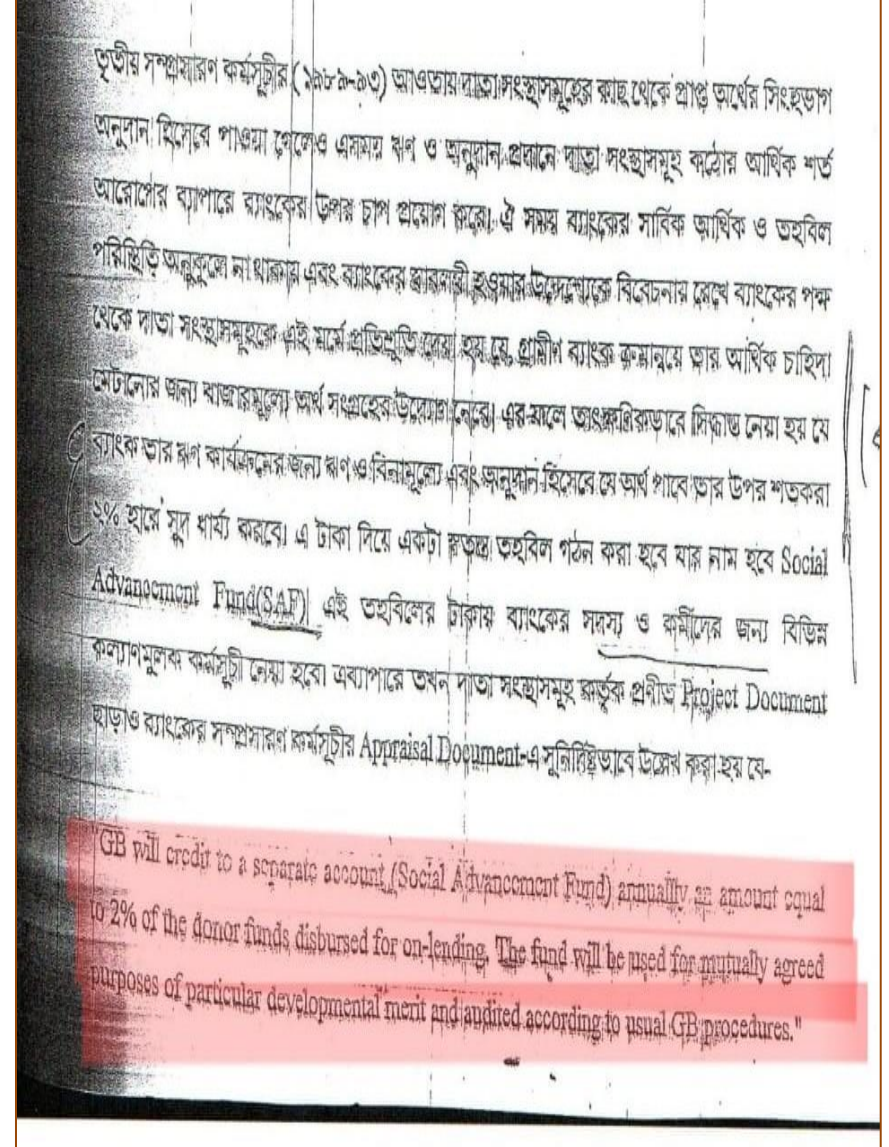 তৃতীয় সম্প্রসারণ কর্মসূচীর (১৯৮৯-৯৩) আওতায় দাতা সংস্থাসমূহের কাছ থেকে প্রাপ্ত অর্থের সিংহভাগ
অনুদান হিসেবে পাওয়া গেলেও এসময় ঋণ ও অনুদান প্রদানে দাতা সংস্থাসমূহ কঠোর আর্থিক শর্ত
আরোপের ব্যাপারে ব্যাংকের উপর চাপ প্রয়োগ করে। ঐ সময় ব্যাংকের সার্বিক আর্থিক ও তহবিল
পরিস্থিতি অনুকূলে না থাকায় এবং ব্যাংকের স্বাবলম্বী হওয়ার উদ্দেশ্যকে বিবেচনায় রেখে ব্যাংকের পক্ষ
থেকে দাতা সংস্থাসমূহকে এই মর্মে প্রতিশ্রুতি দেয়া হয় যে, গ্রামীণ ব্যাংক ক্রমান্বয়ে তার আর্থিক চাহিদা
মেটানোর জন্য বাজারমূল্যে অর্থ সংগ্রহের উদ্যোগ নেবে। এর ফলে তাৎক্ষণিকভাবে সিদ্ধান্ত নেয়া হয় যে
ব্যাংক তার ঋণ কার্যক্রমের জন্য ঋণ ও বিনামূল্যে এবং অনুদান হিসেবে যে অর্থ পাবে তার উপর শতকরা
২% হারে সুদ ধার্য্য করবে। এ টাকা দিয়ে একটা স্বতন্ত্র তহবিল গঠন করা হবে যার নাম হবে Social
Advancement Fund(SAF)| এই তহবিলের টাকায় ব্যাংকের সদস্য ও কর্মীদের জন্য বিভিন্ন
কল্যাণমুলক কর্মসূচী নেয়া হবে। এব্যাপারে তখন দাতা সংস্থাসমূহ কর্তৃক প্রণীত Project Document
ছাড়াও ব্যাংকের সম্প্রসারণ কর্মসূচীর Appraisal Document-এ সুনির্দিষ্টভাবে উল্লেখ করা হয় যে-
"GB will credit to a separate account (Social Advancement Fund) annually an amount equal
to 2% of the donor funds disbursed for on-lending. The fund will be used for mutually agreed
purposes of particular developmental merit and audited according to usual GB procedures."